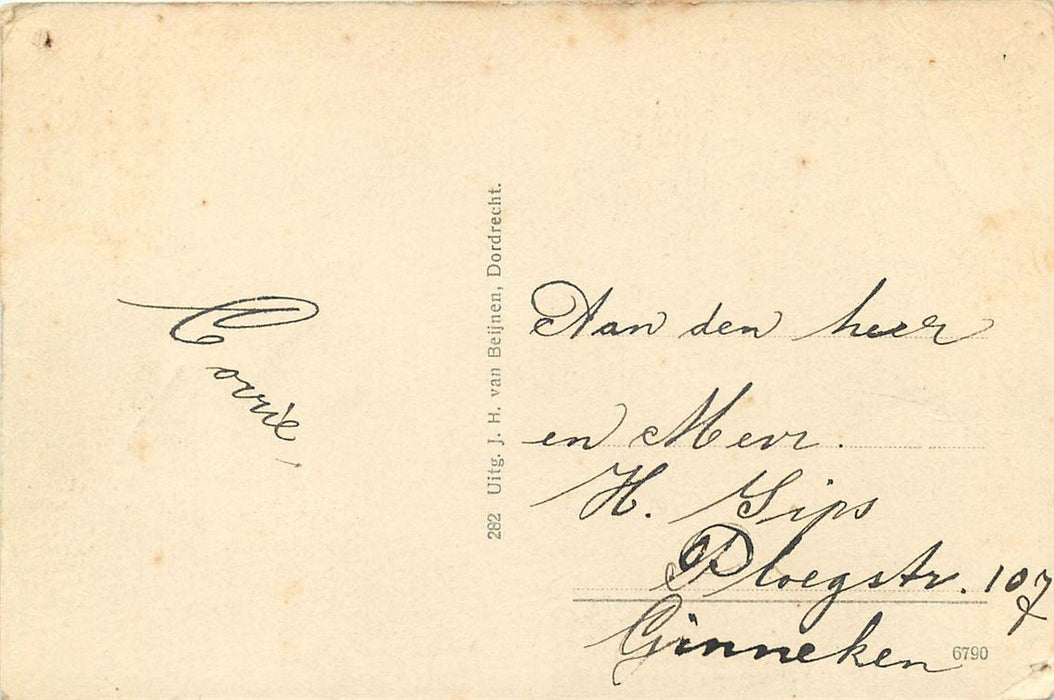 Corrie
282 Uitg. J. H. van Beijnen, Dordrecht.
Aan den heer
en Mevr.
H. Gips
Ploegstr. 107
Ginneken
6790